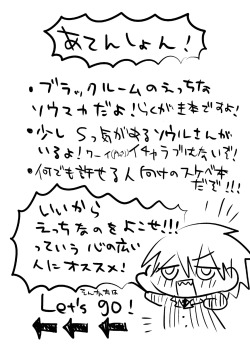 あてんしょん!
・ブラックルームのえっちな
ソウマカだよ!らくがき本ですよ!
・少しSっ気があるソウルさんが
いるよ!ワーイ イチャラブはないぞ!
・何でも許せる人向けのスケベ本
だぞ!!!
いいから
えっちなのをよこせ!!!
っていう心の広い
人にオススメ!
そんなかたは
Let's go!